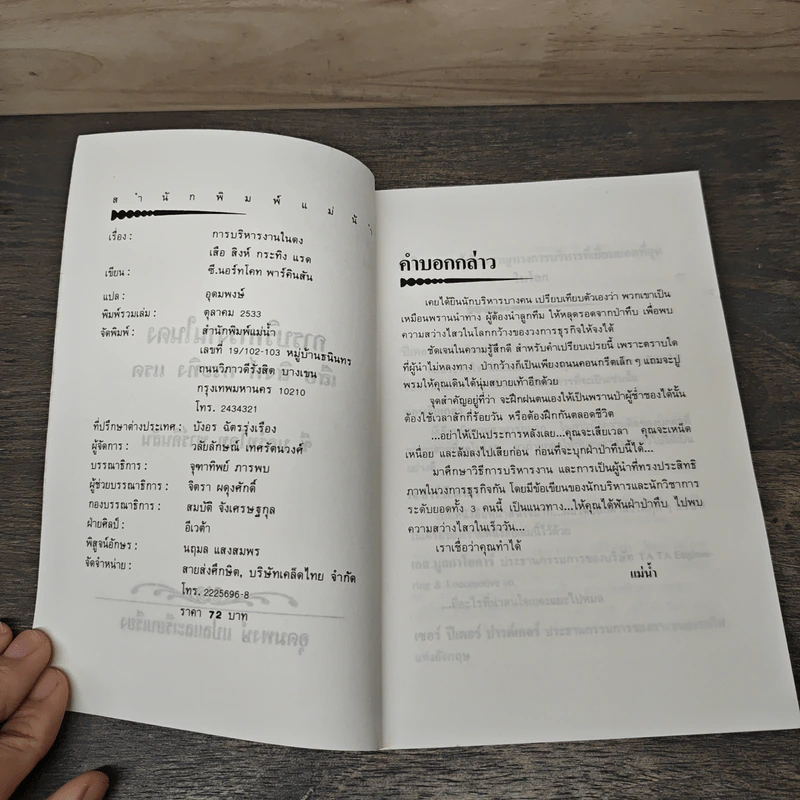 สำนักพิมพ์แม่น้ำ
เรื่อง: การบริหารงานในดง
เสือ สิงห์ กระทิง แรด
เขียน: ซี.นอร์ทโคท พาร์คินสัน
แปล : อุดมพงษ์
พิมพ์รวมเล่ม : ตุลาคม 2533
จัดพิมพ์ : สำนักพิมพ์แม่น้ำ
เลขที่ 19/102-103 หมู่บ้านธนินทร
ถนนวิภาวดีรังสิต บางเขน
กรุงเทพมหานคร 10210
โทร. 2434321
ที่ปรึกษาต่างประเทศ : บังอร ฉัตรรุ่งเรือง
ผู้จัดการ : วลัยลักษณ์ เทศรัตนวงศ์
บรรณาธิการ : จุฑาทิพย์ ภารพบ
ผู้ช่วยบรรณาธิการ : จิตรา ผดุงศักดิ์
กองบรรณาธิการ : สมบัติ จังเศรษฐกุล
ฝ่ายศิลป์ : อีเวต้า
พิสูจน์อักษร : นฤมล แสงสมพร
จัดจำหน่าย : สายส่งศึกษิต, บริษัทเคล็ดไทย จำกัด
โทร. 2225696-8
ราคา 72 บาท
คำบอกกล่าว
เคยได้ยินนักบริหารบางคน เปรียบเทียบตัวเองว่า พวกเขาเป็น
เหมือนพรานนำทาง ผู้ต้องนำลูกทีม ให้หลุดรอดจากป่าทึบ เพื่อพบ
ความสว่างไสวในโลกกว้างของวงการธุรกิจให้จงได้
ชัดเจนในความรู้สึกดี สำหรับคำเปรียบเปรยนี้ เพราะตราบใด
ที่ผู้นำไม่หลงทาง ป่ากว้างก็เป็นเพียงถนนคอนกรีตเล็ก ๆ แถมจะปู
พรมให้คุณเดินได้นุ่มสบายเท้าอีกด้วย
จุดสำคัญอยู่ที่ว่า จะฝึกฝนตนเองให้เป็นพรานป่าผู้ช่ำชองได้นั้น
ต้องใช้เวลาสักกี่ร้อยวัน หรือต้องฝึกกันตลอดชีวิต
...อย่าให้เป็นประการหลังเลย...คุณจะเสียเวลา คุณจะเหน็ด
เหนื่อย และล้มลงไปเสียก่อน ก่อนที่จะบุกฝ่าป่าทึบนี้ได้...
มาศึกษาวิธีการบริหารงาน และการเป็นผู้นำที่ทรงประสิทธิ
ภาพในวงการธุรกิจกัน โดยมีข้อเขียนของนักบริหารและนักวิชาการ
ระดับยอดทั้ง 3 คนนี้ เป็นแนวทาง...ให้คุณได้ฟันฝ่าป่าทึบ ไปพบ
ความสว่างไสวในเร็ววัน...
เราเชื่อว่าคุณทำได้
แม่น้ำ